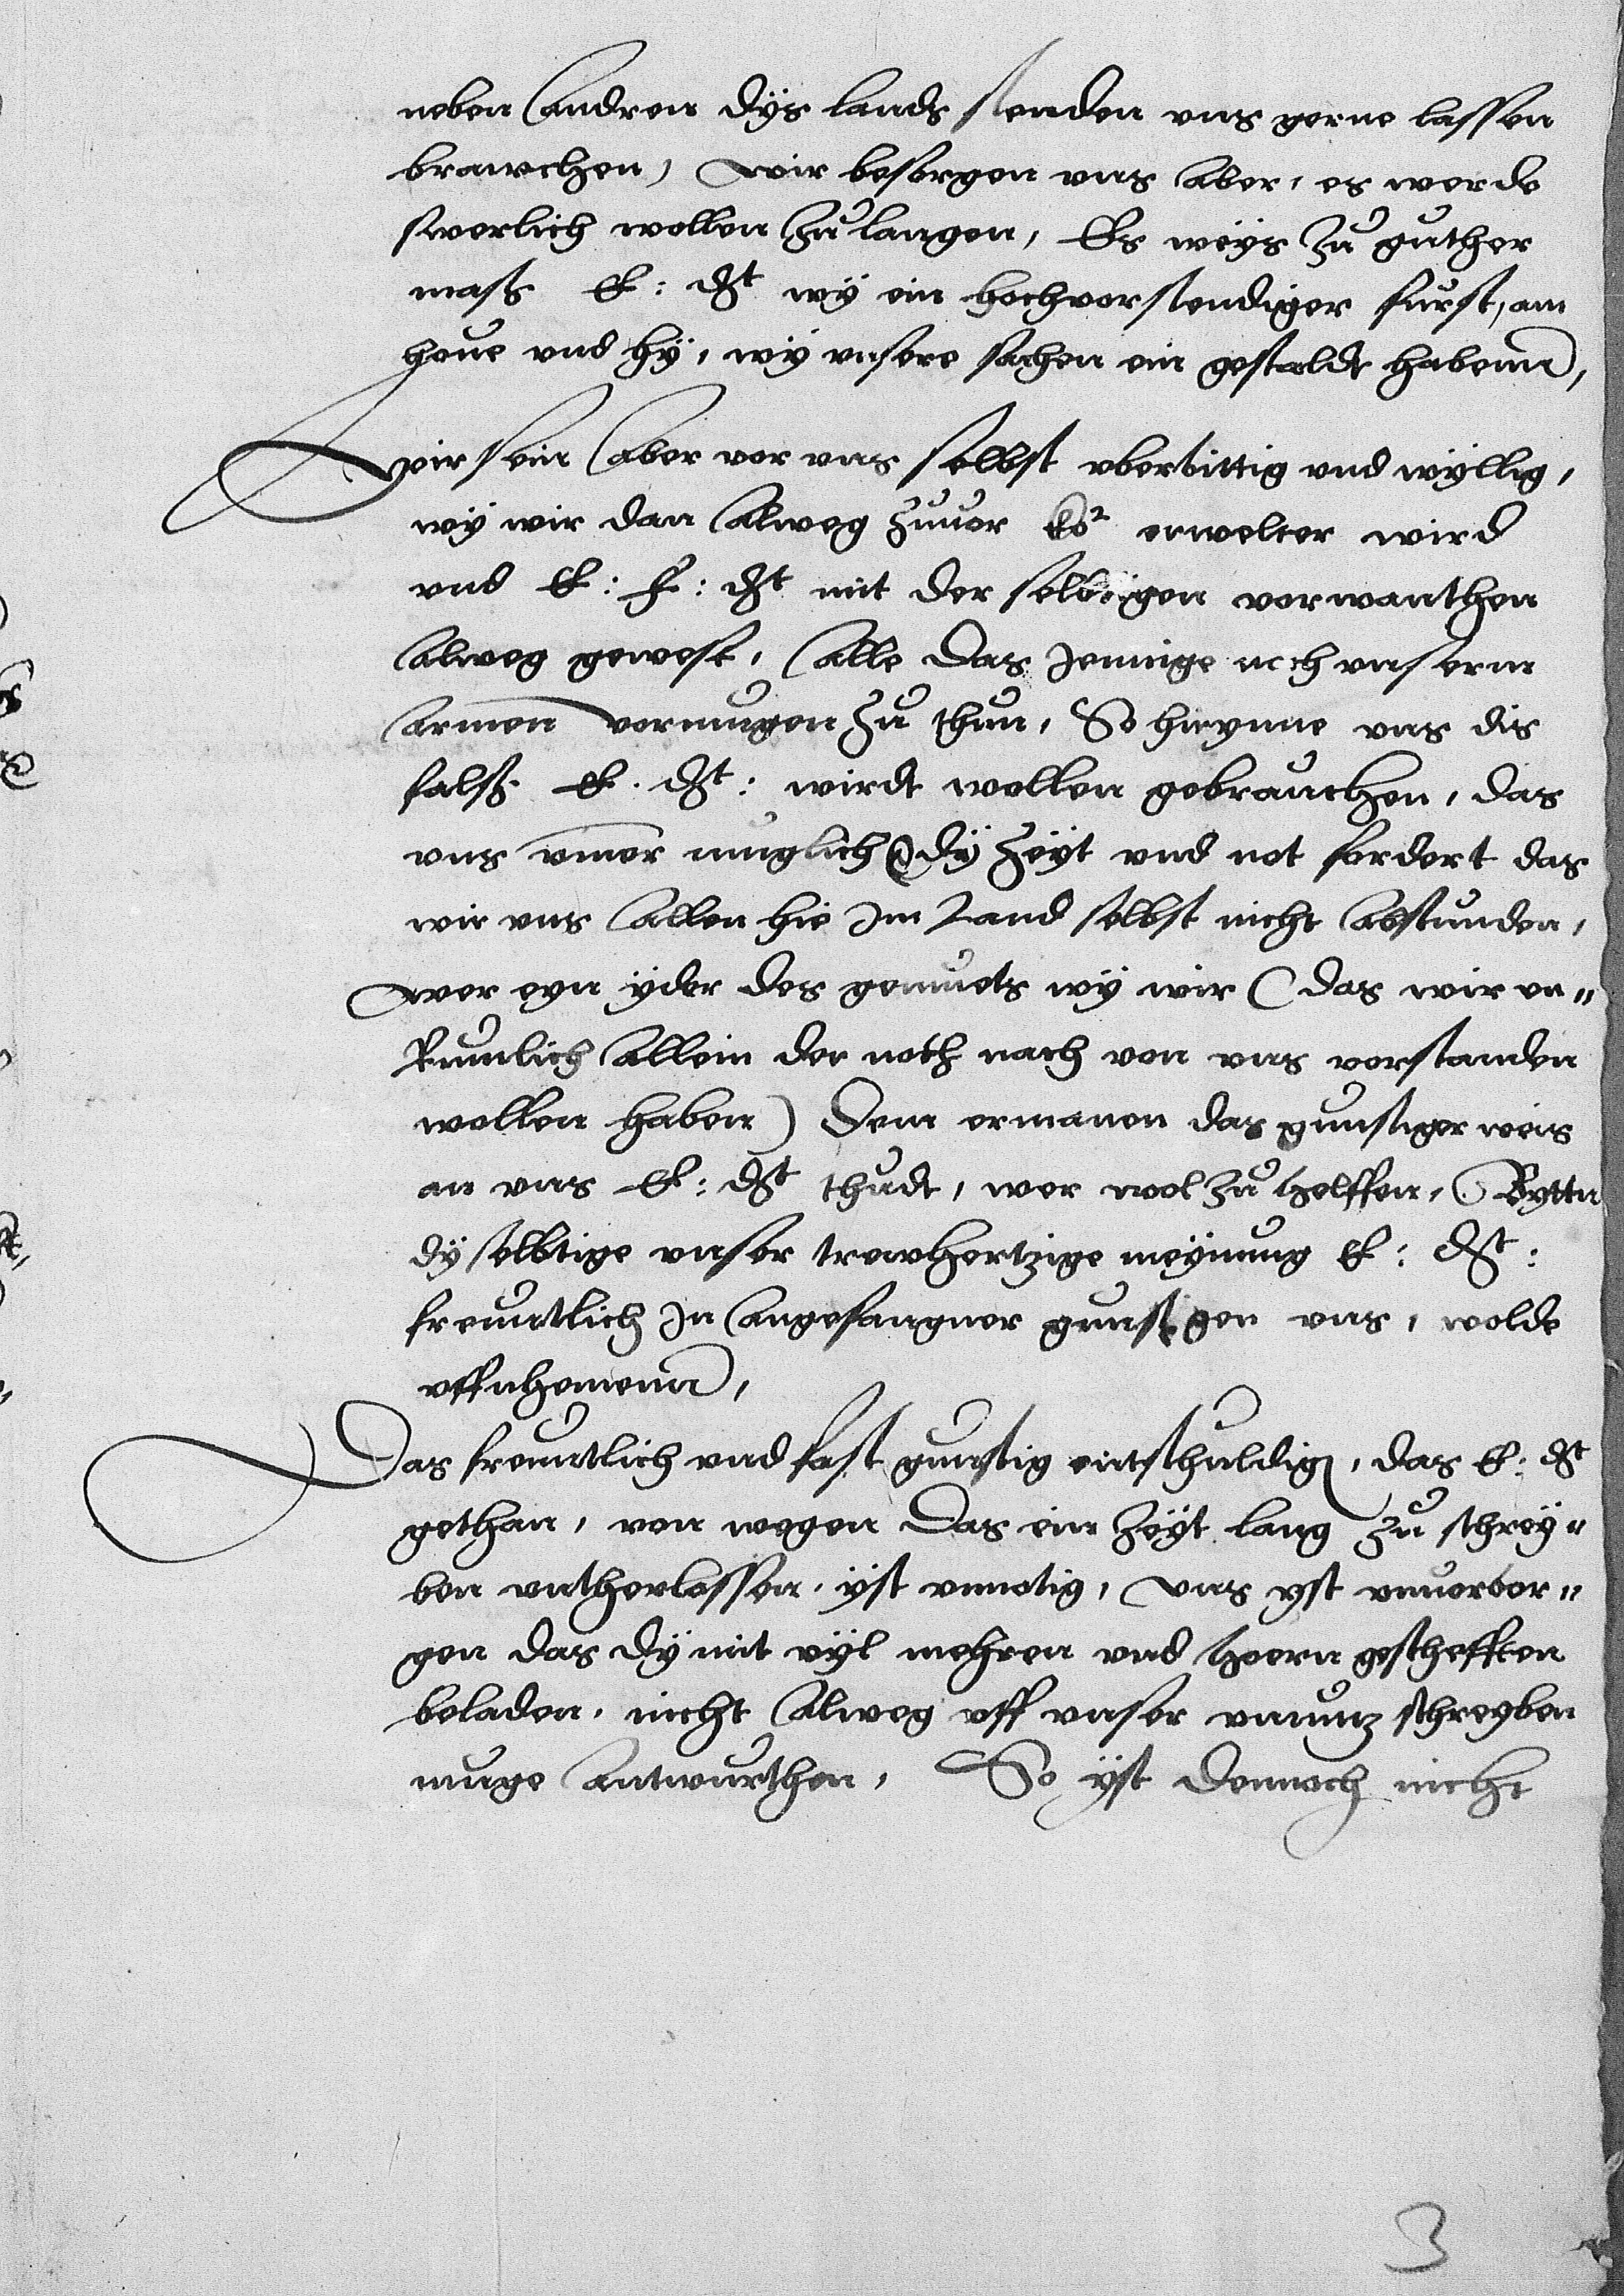 neben andren dÿs lands stenden vns gerne lassen
brawchen, wir besorgen vns aber, es werde
swerlich wollen zu langen, Es weÿs zu guther
mass E: dt wÿ ein hochvorstendiger furst, am
houe vnd hÿ, wÿ vnsere sachen ein gestaldt habenn,
Wir sein aber vor vns selbst vberbittig vnd wÿllig,
wÿ wir dan alweg zuuor erwelter wird
vnd E: F: dt mit der selbtigen vorwanthen
alweg gewest, alle das Jennige noch vnserm
armen vormugen zu thun, So hirynne vns dis
fals E. dt: wirdt wollen gebrauchen, das
vns vmer muglich dÿ zeÿt vnd not fordert das
wir vns allen hie Im Land selbst nicht abstunden,
wer eyn ÿder des gemuets wÿ wir (das wir vn-
Rumlich allein der noth nach von vns vorstanden
wollen haben) Dem ermanen das gunstiger weis
an vns E: dt thudt, wer wol zu helffen, Byttn
dÿ selbtige vnser trewhertzige meÿnung E: dt:
freuntlich In angefangner gunst gen vns, wolde
vffnhemenn,
Das freuntlich vnd fast gunstig entschuldigen, das E: dt
gethan, von wegen das ein zeÿt lang zu schrey-
ben vntherlassen, ÿst vnnotig, vns yst vnuorbor-
gen das dÿ mit vÿl mehren vnd hoern gescheften
beladen, nicht alweg vff vnser vnnutz schreyben
muge antwurthen, So ÿst dennoch nicht
3